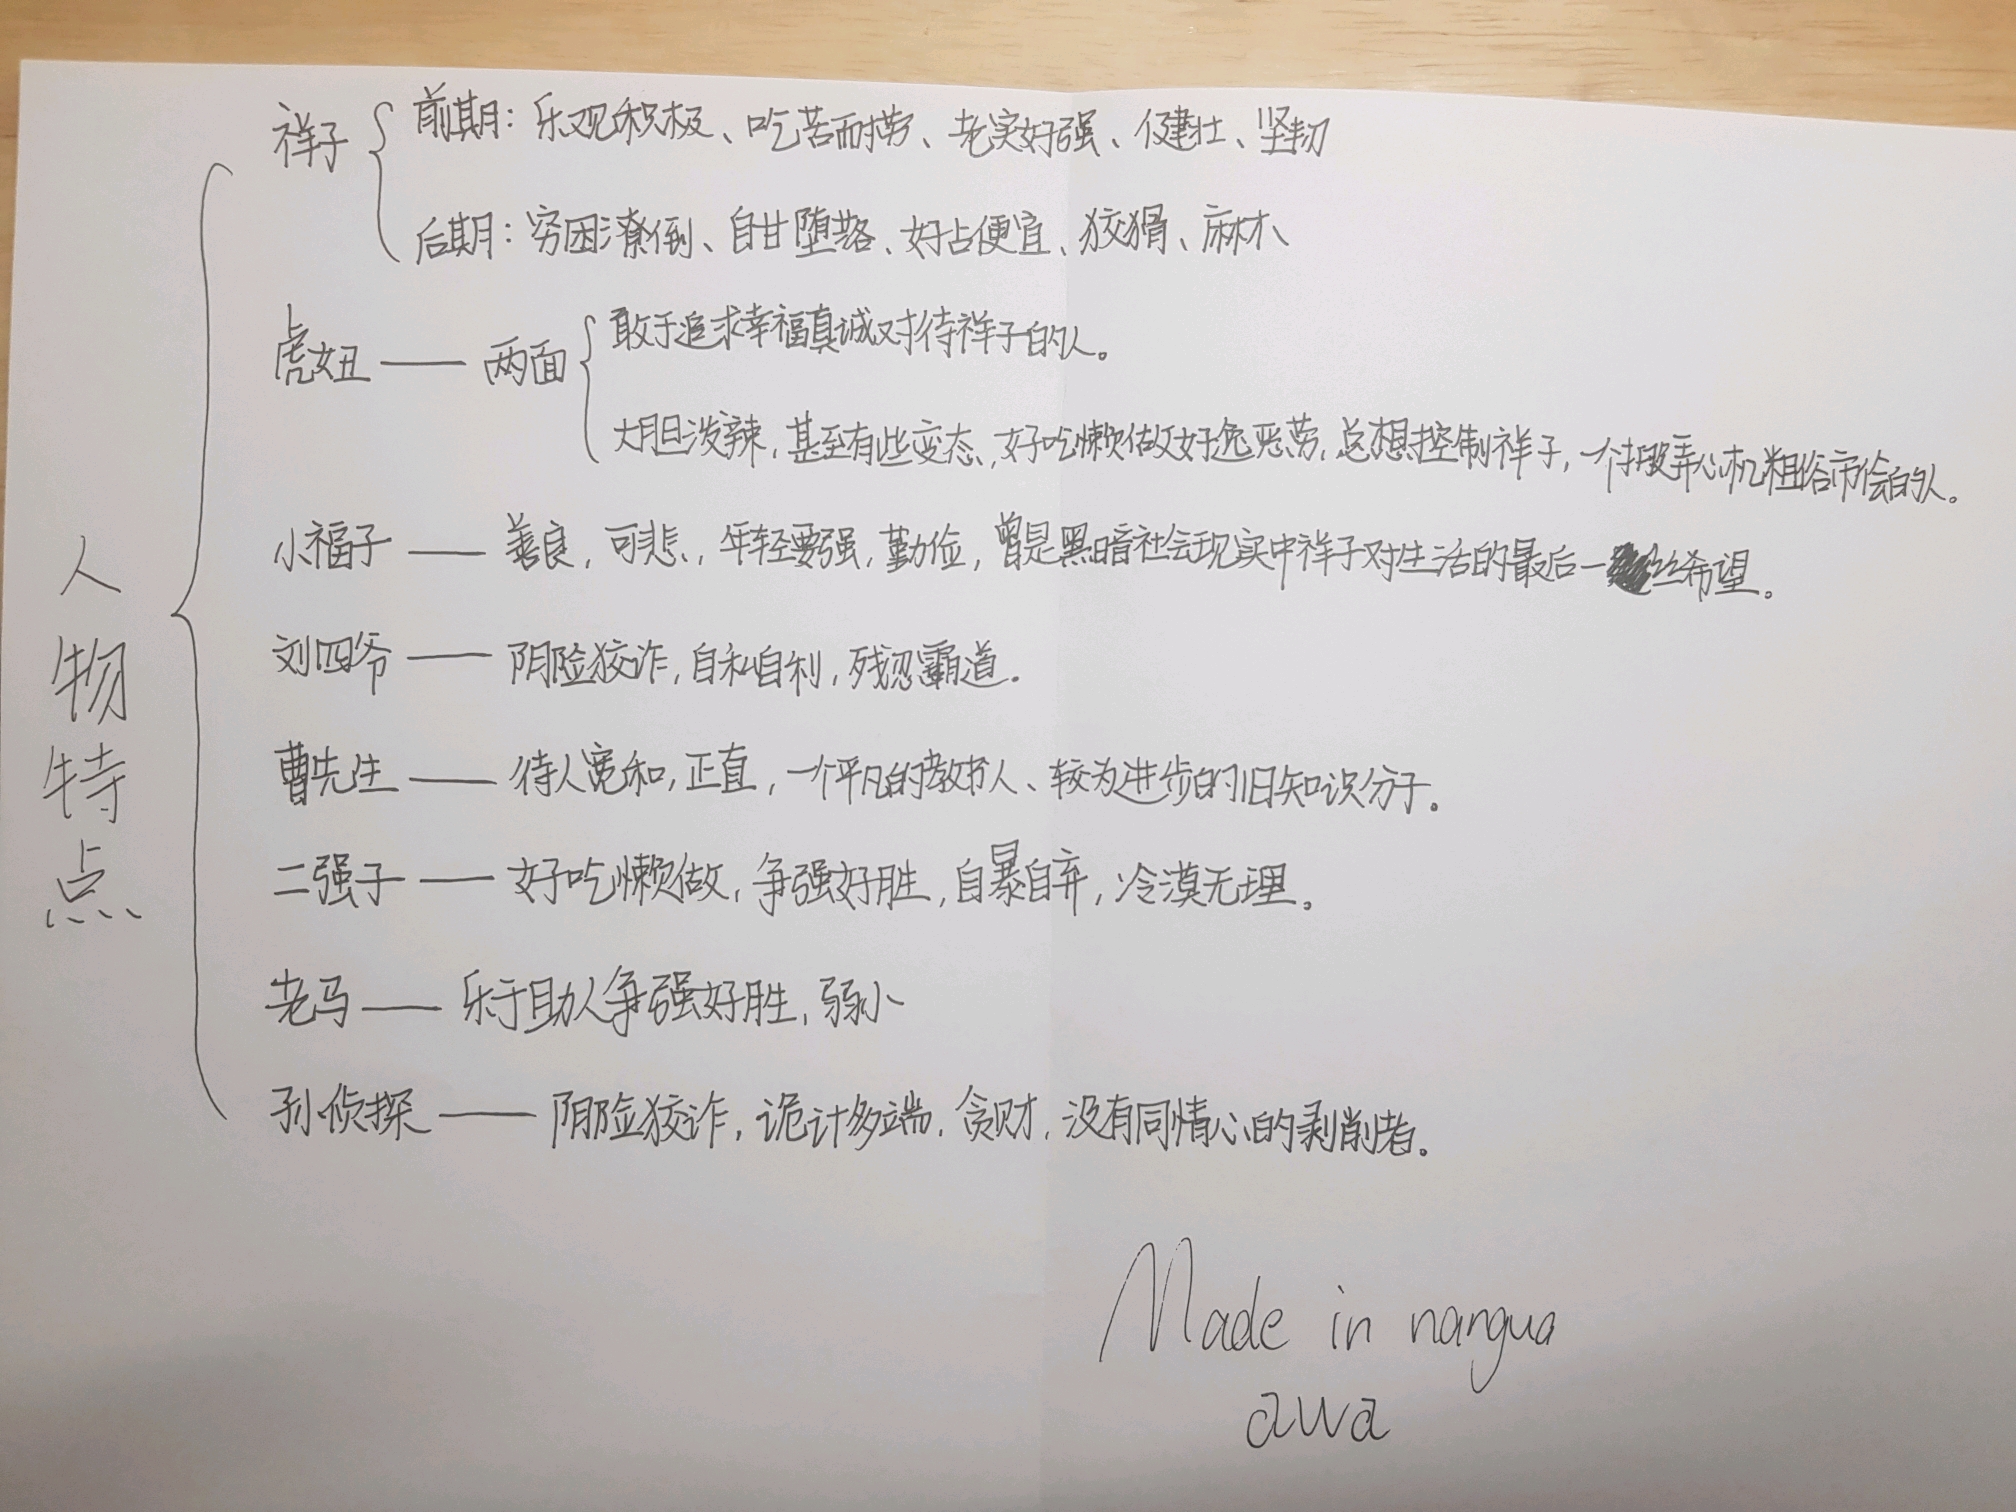 人物特点
祥子
前期：乐观积极、吃苦而耐劳、老实好强、健壮、坚韧
后期：穷困潦倒、自甘堕落、好占便宜、狡猾、麻木
虎妞——两面
敢于追求幸福真诚对待祥子的人。
大胆泼辣，甚至有些变态，好吃懒做好逸恶劳，总想控制祥子，一个扮弄心机粗俗市侩的人。
小福子——善良，可悲，年轻要强，勤俭，曾是黑暗社会现实中祥子对生活的最后一丝希望。
刘四爷——阴险狡诈，自私自利，残忍霸道.
曹先生——待人宽和，正直，一个平凡的教书人、较为进步的旧知识分子。
二强子——好吃懒做，争强好胜，自暴自弃，冷漠无理。
老马——乐于助人争强好胜，弱小
孙侦探——阴险狡诈，诡计多端，贪财，没有同情心的剥削者。
Made in nangua
awa